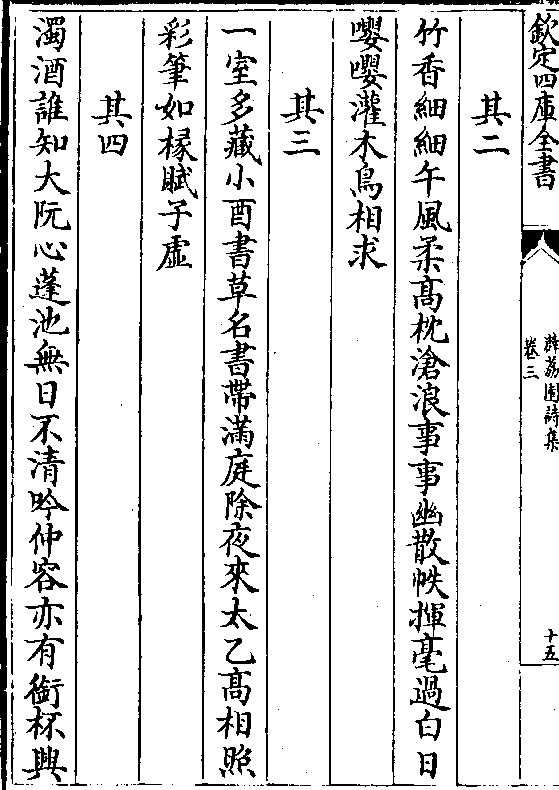 欽定四庫全書
薜荔園詩集
卷三
十五
其二
竹香細細午風柔髙枕滄浪事事幽散帙揮毫過白日
嚶嚶灌木鳥相求
其三
一室多藏小酉書草名書帶滿庭除夜來太乙髙相照
彩筆如椽賦子虛
其四
濁酒誰知大阮心蓬池無日不清吟仲容亦有銜杯興